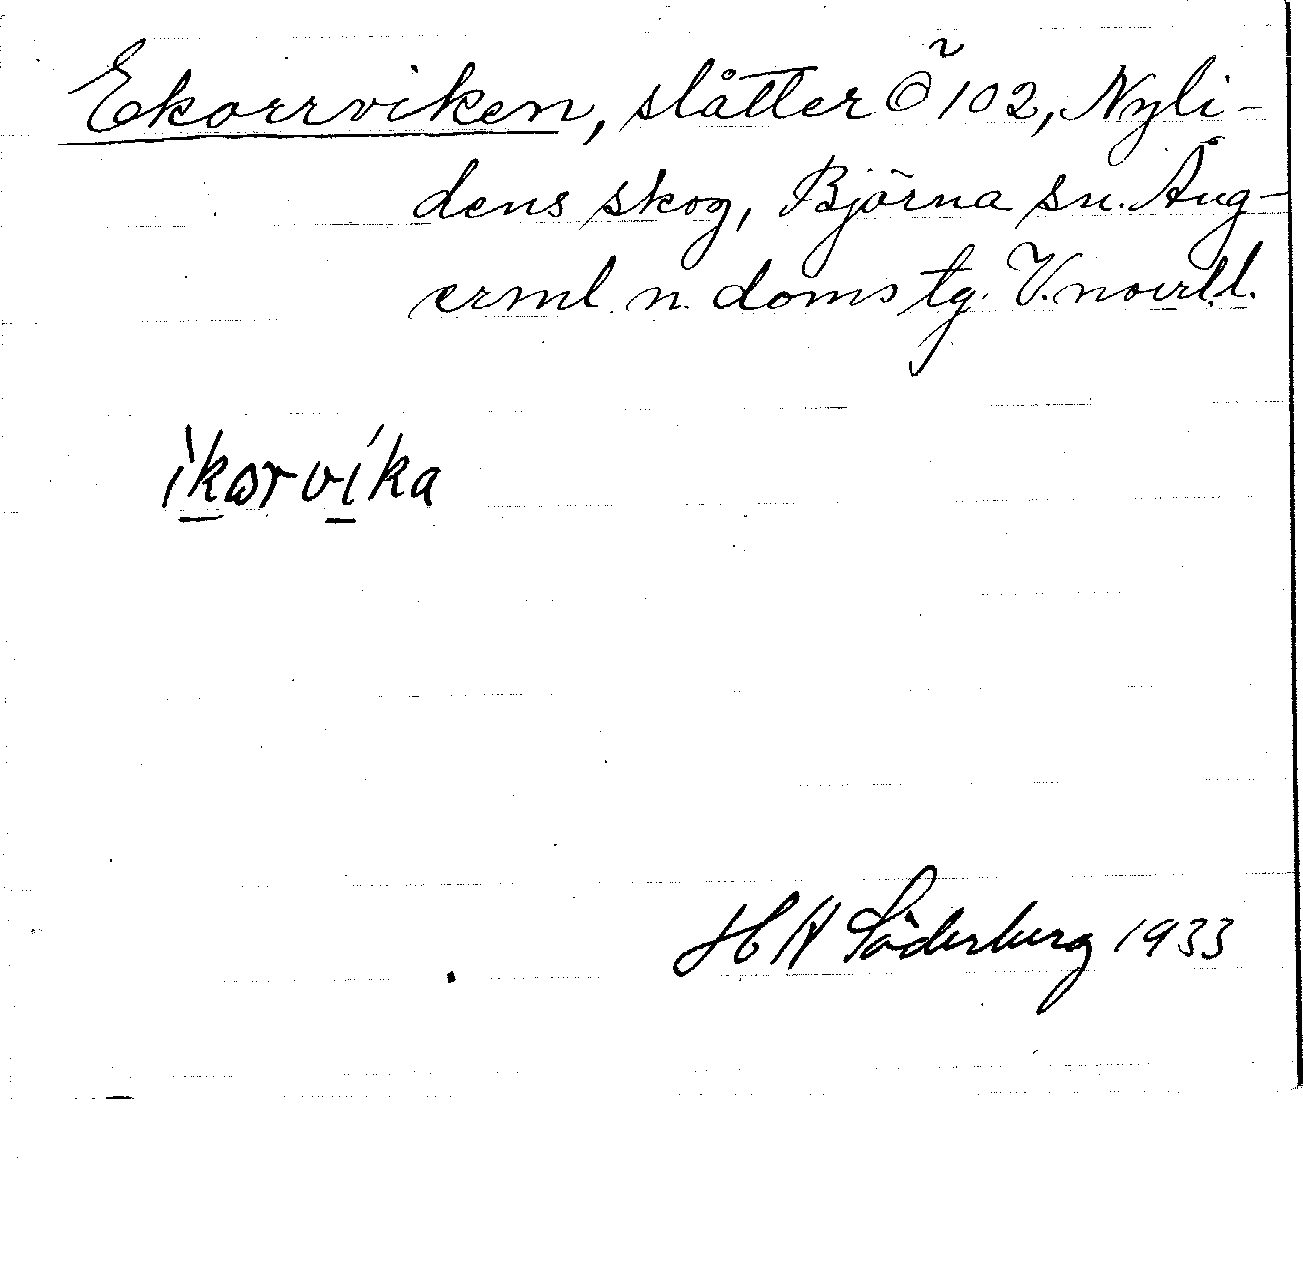 Ekorrviken, slåtter Ö 102, Nyli-
dens skog, Björna sn. Ång-
erml. n. doms tg. V.norrl.l.
ikorvika
H A Söderberg 1933